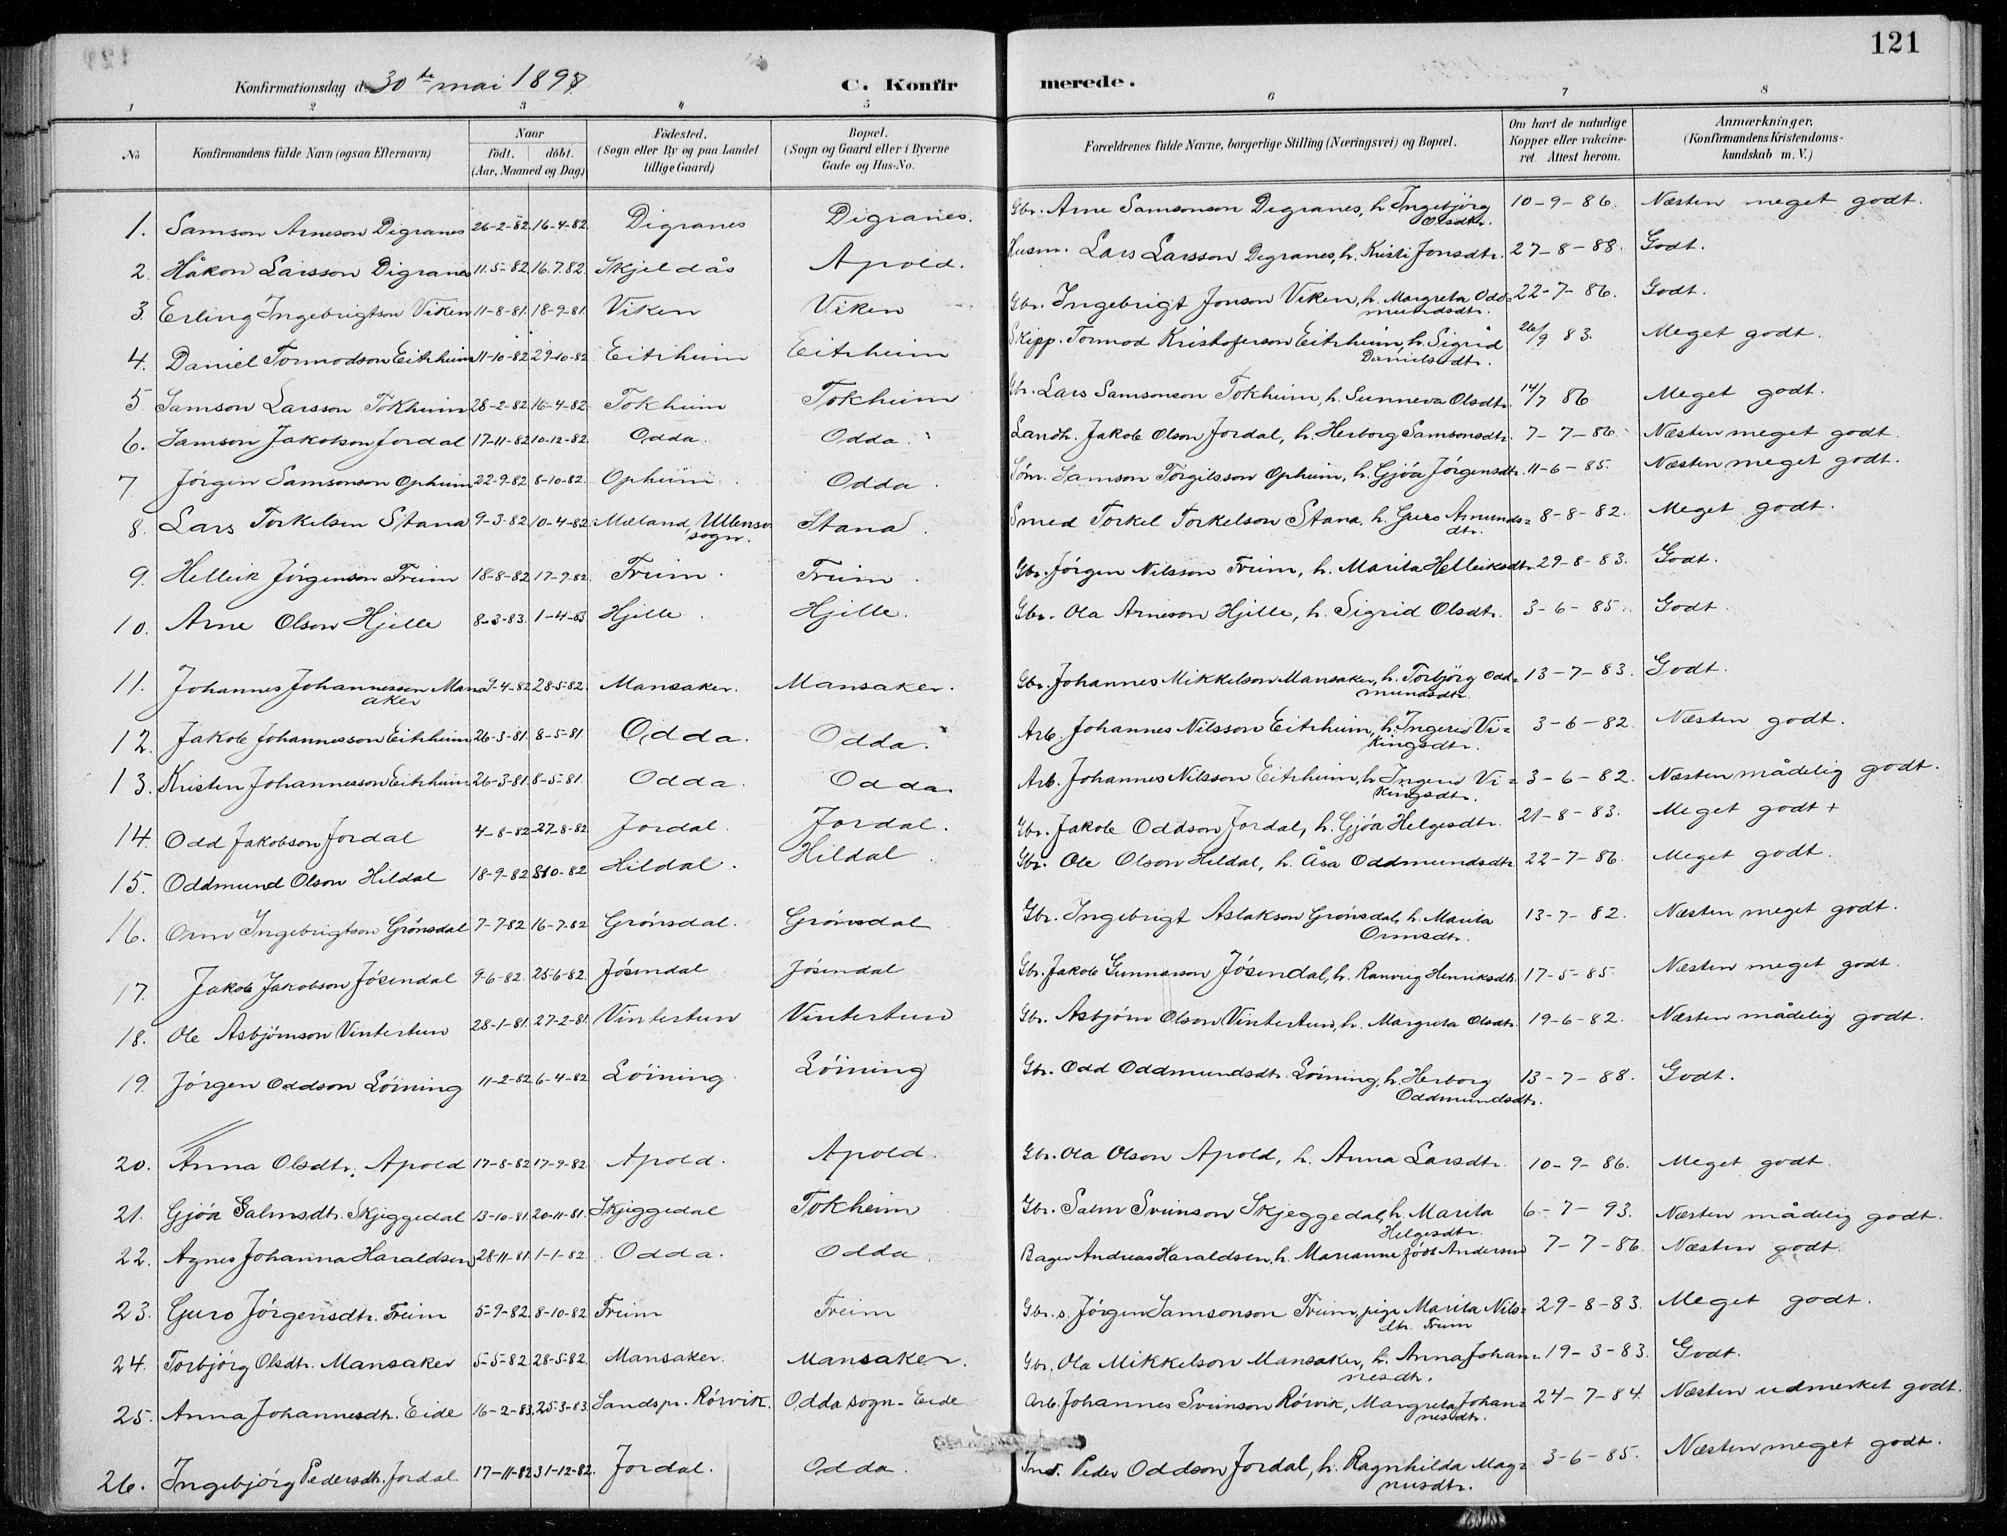 121
Konfirmationsdag d. 30te mai 1897
C. Konfirmerede.
1 2 3 4 5 6 7 8
No
Konfirmandens fulde Navn (ogsaa Efternavn)
Naar
født. døbt.
(Aar, Maaned og Dag)
Fødested.
(Sogn eller By og paa Landet
tillige Gaard)
Bopæl.
(Sogn og Gaard eller i Byerne
Gade og Hus-No.
Forældrenes fulde Navne, borgerlige Stilling (Næringsvei) og Bopæl.
Om havt de naturlige
Kopper eller vakcine-
ret. Attest herom.
Anmærkninger,
(Konfirmandens Kristendoms-
kundskab m. V.)
1. Samson Arneson Digranes 26-2-82 16-4-82 Digranes Digranes. Gbr. Arne Samsonson Degranes, h. Ingebjørg 10-9-86. Næsten meget godt.
Olsdtr.
2. Håkon Larsson Digranes 11.5-82 16.7.82 Skjeldås Apold. Husm. Lars Larsson Degranes, h. Kristi Jonsdtr. 27-8-88. Godt.
3. Erling Ingebrigtson Viken 11-8-81. 18-9-81. Viken Viken Gbr. Ingebrigt Jonson Viken, h. Margreta Odd= 22-7-86. Godt.
mundsdtr.
4. Daniel Tormodson Eitrheim 11-10-82 29-10-82 Eitrheim Eitrheim Skipp. Tormod Kristoferson Eitrheim, h. Sigrid 26/9 83. Meget godt.
Danielsdtr.
5 Samson Larsson Tokheim 28-2-82 16-4-82 Tokheim Tokheim Gbr. Lars Samsonson Tokheim, h. Sunneva Olsdtr. 14/7 86 Meget godt.
6. Samson Jakobson Jordal 17-11-82 10-12-82. Odda. Odda. Landh. Jakob Olson Jordal, h. Herborg Samsonsdtr. 7-7-86. Næsten meget godt.
7 Jørgen Samsonson Opheim 22-9-82 8-10-82. Opheim Odda. Samson Torgilsson Opheim, h. Gjøa Jørgensdtr. 11-6-85. Næsten meget godt.
8. Lars Torkelsen Stana 9-3-82 10-4-82 Mæland, Ullensv. Stana. Smed Torkel Torkelson Stana, h. Guro Asmunds= 8-8-82. Meget godt.
sogn. dtr.
9. Helleik Jørgenson Freim 18-8-82 17-9-82. Freim. Freim. Gbr. Jørgen Nilsson Freim, h. Marita Helleiksdtr. 29-8-83. Godt.
10. Arne Olson Hjelle 8-3-83. 1-4-83 Hjelle. Hjelle. Gbr. Ola Arneson Hjelle, h. Sigrid Olsdtr. 3-6-85. Godt
11. Johannes Johannesson Mans 9-4-82 28-5-82. Mansaker. Mansaker. Gbr. Johannes Mikkelson Mansaker, h. Torbjørg Odd= 13-7-83. Godt.
aker mundsdtr.
12. Jakob Johannesson Eitrheim 26-3-81. 8-5-81 Odda. Odda. Arb. Johannes Nilsson Eitrheim, h. Ingerid Vi= 3-6-82. Næsten godt.
kingsdtr.
13. Kristen Johannesson Eitrheim 26-3-81. 8-5-81. Odda. Odda. Arb. Johannes Nilsson Eitrheim, h. Ingerid Vi= 3-6-82. Næsten mådelig godt.
kingsdtr.
14. Odd Jakobson Jordal 4-8-82 27-8-82 Jordal. Jordal. Gbr. Jakob Oddson Jordal, h. Gjøa Helgesdtr. 21-8-83. Meget godt +
15. Oddmund Olson Hildal 18-9-82 8-10-82 Hildal. Hildal. Gbr. Ole Olson Hildal, h. Åsa Oddmundsdtr. 22-7-86. Meget godt.
16. Orm Ingebrigtson Grønsdal 7-7-82 16-7-82 Grønsdal. Grønsdal Gbr. Ingebrigt Aslakson Grønsdal, h. Marita 13-7-82. Næsten meget godt.
Ormsdtr.
17. Jakob Jakobson Jøsendal 9-6-82. 25-6-82. Jøsendal Jøsendal Gbr. Jakob Gunnarson Jøsendal, h. Ranveig Henriksdtr. 17-5-85. Næsten meget godt.
18. Ole Asbjørnson Vintertun 28-1-81. 27-2-81. Vintertun Vintertun Gbr. Asbjørn Olson Vintertun, h. Margreta Olsdtr. 19-6-82. Næsten mådelig godt.
19. Jørgen Oddson Løining 11-2-82 6-4-82 Løining Løining Gbr. Odd Oddmundsdtr. Løining, h. Herborg 13-7-88. Godt.
Oddmundsdtr.
20. Anna Olsdtr. Apold 17-8-82 17-9-82. Apold. Apold. Gbr. Ola Olson Apold, h. Anna Larsdtr. 10-9-86. Meget godt.
21. Gjøa Salmsdtr. Skjeggedal 13-10-81. 20-11-81. Skjeggedal Tokheim Gbr. Salm Sveinson Skjeggedal, h. Marita 6-7-93. Næsten mådelig godt.
Helgesdtr.
22. Agnes Johanna Haraldsen 28-11-81. 1-1-82. Odda. Odda Bager Andreas Haraldsen, h. Marianne født Andersen 7-7-86. Næsten godt.
23. Guro Jørgensdtr. Freim 5-9-82. 8-10-82. Freim Freim Gbr. s. Jørgen Samsonson Freim, pige Marita Nils= 29-8-83. Meget godt.
dtr. Freim
24. Torbjørg Olsdtr. Mansaker 5-5-82 28-5-82. Mansaker. Mansaker. Gbr. Ola Mikkelson Mansaker, h. Anna Johan= 19-3-83. Godt.
nesdtr.
25. Anna Johannesdtr. Eide 16-2-83. 25-3-83. Sandspr. Rørvik. Odda sogn - Eide Arb. Johannes Sveinson Rørvik, Margreta Johan= 24-7-84. Næsten udmerket godt.
nesdtr.
26. Ingebjørg Pedersdtr. Jordal 17-11-82 31-12-82. Jordal. Odda. Ind. Peder Oddson Jordal, h. Ragnhilda Mag= 3-6-85. Næsten meget godt.
nusdtr.